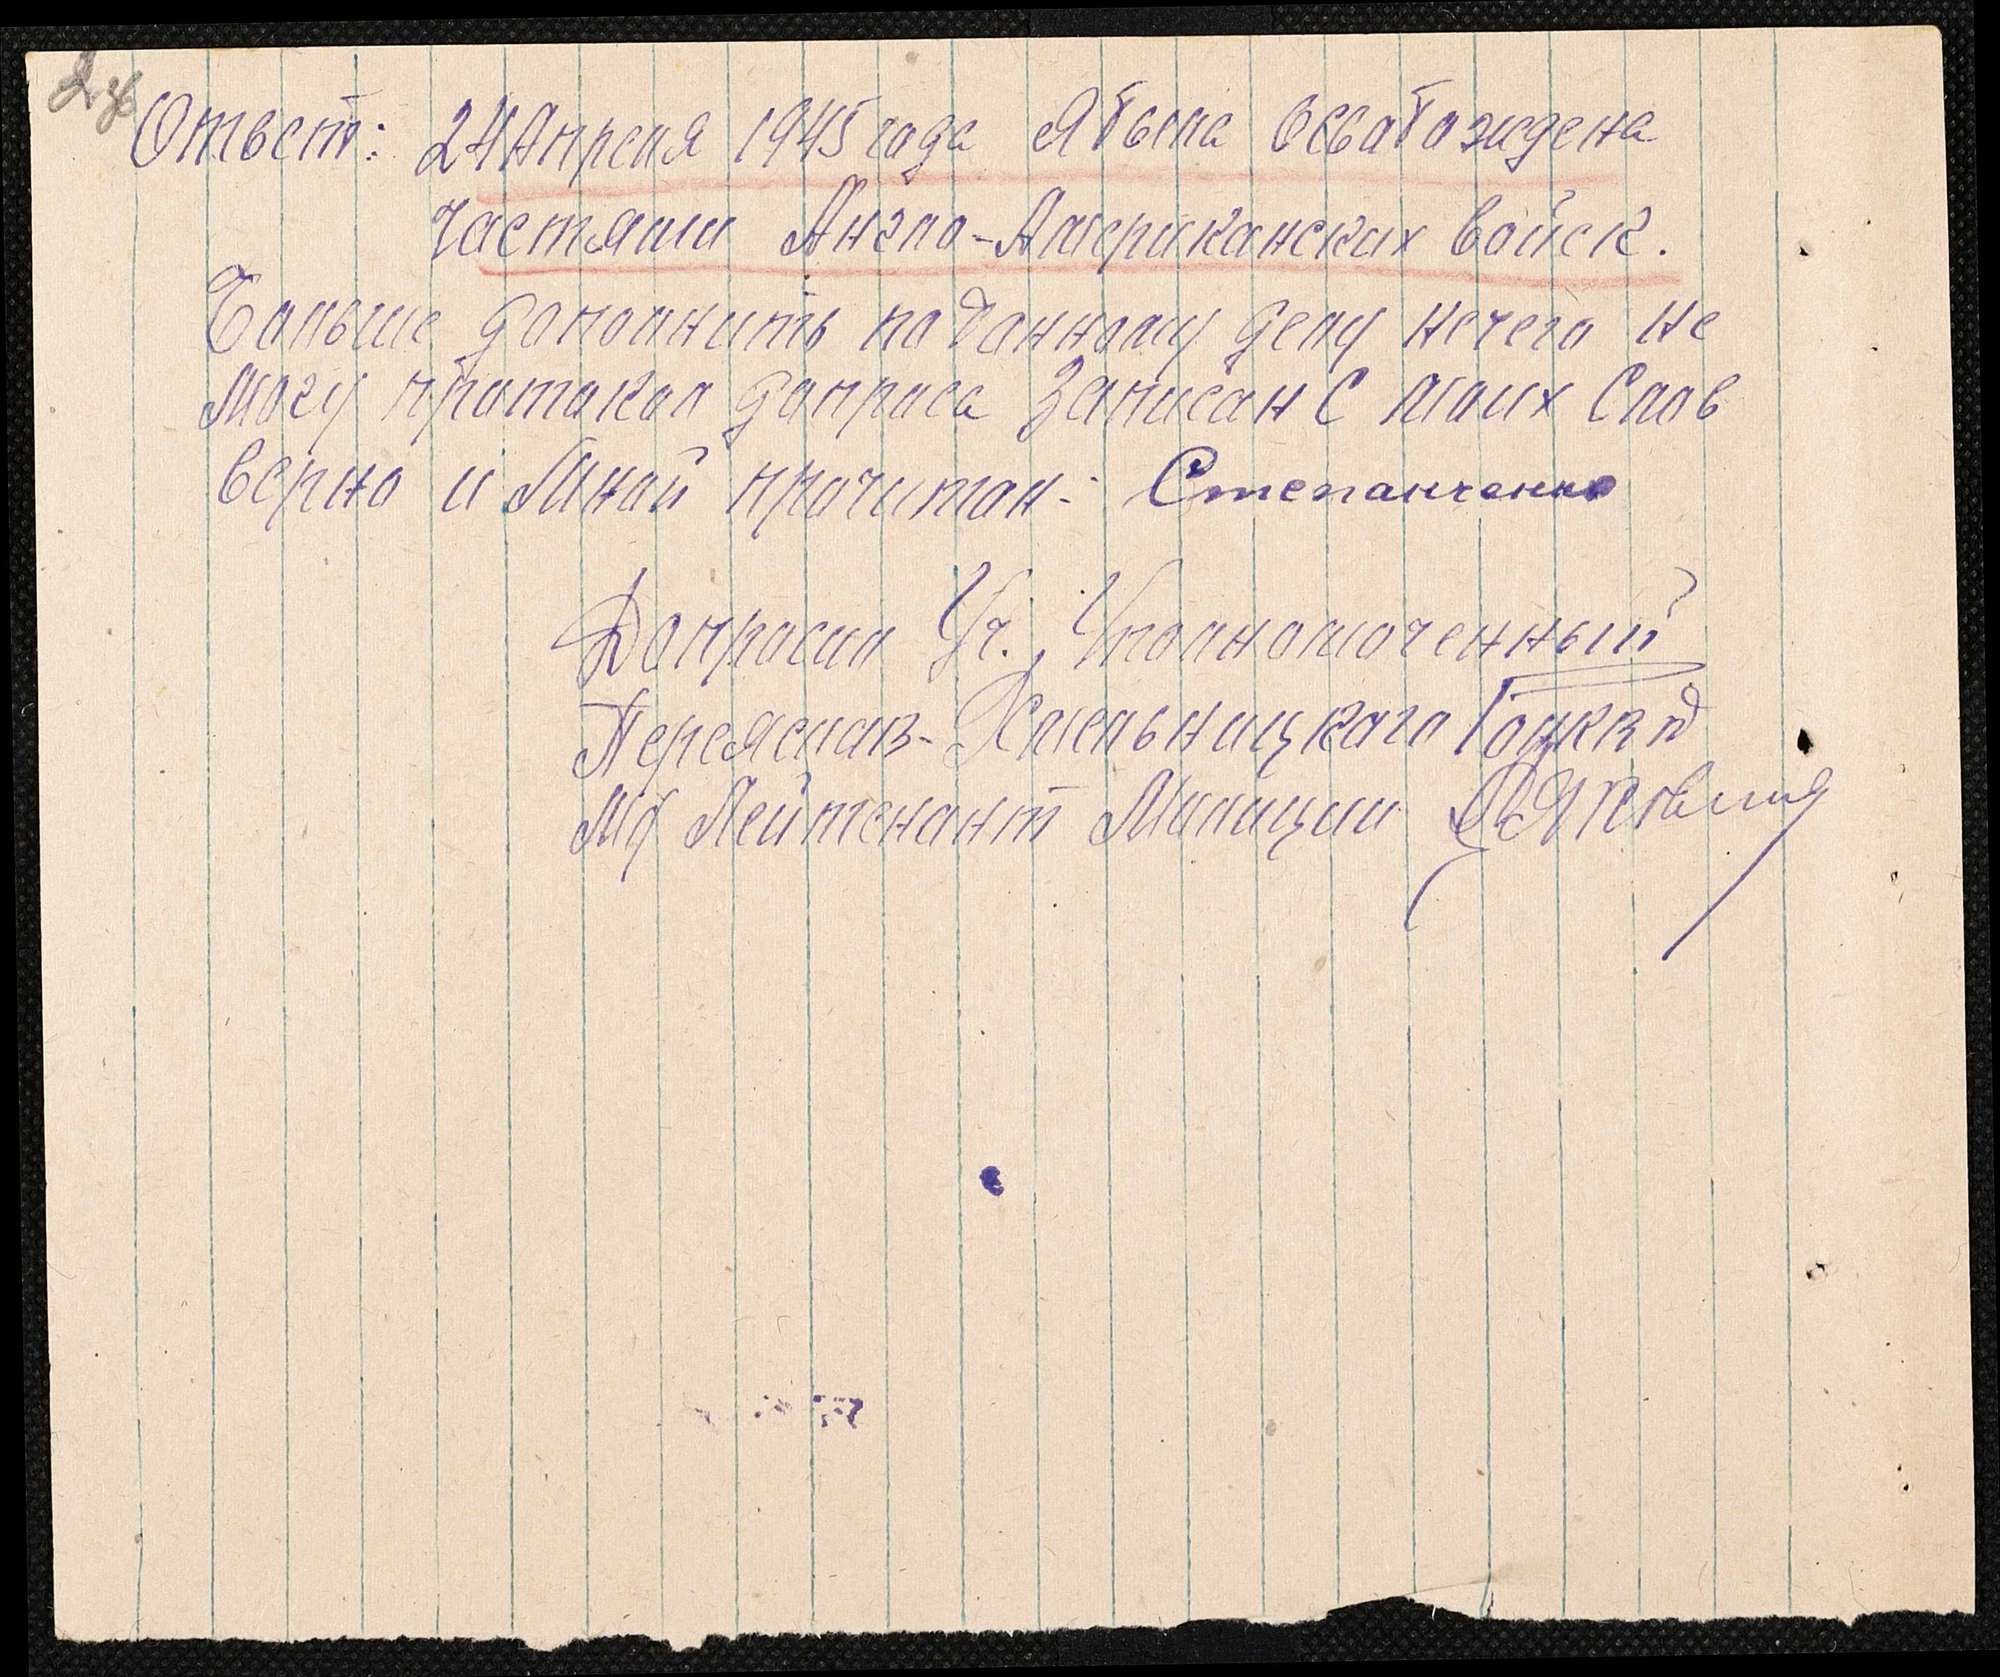 Ответ: 24 Апреля 1945 года Я была Освабождена
частями Англо-Американских войск.
Больше дополнить по данному делу нечего не
Могу протокол допроса Записан С моих Слов
верно и Мной прочитан: Степанченко
Допросил Уч. Уполномоченный
Переяслав-Хмельницкого
Мл Лейтенант Милиции